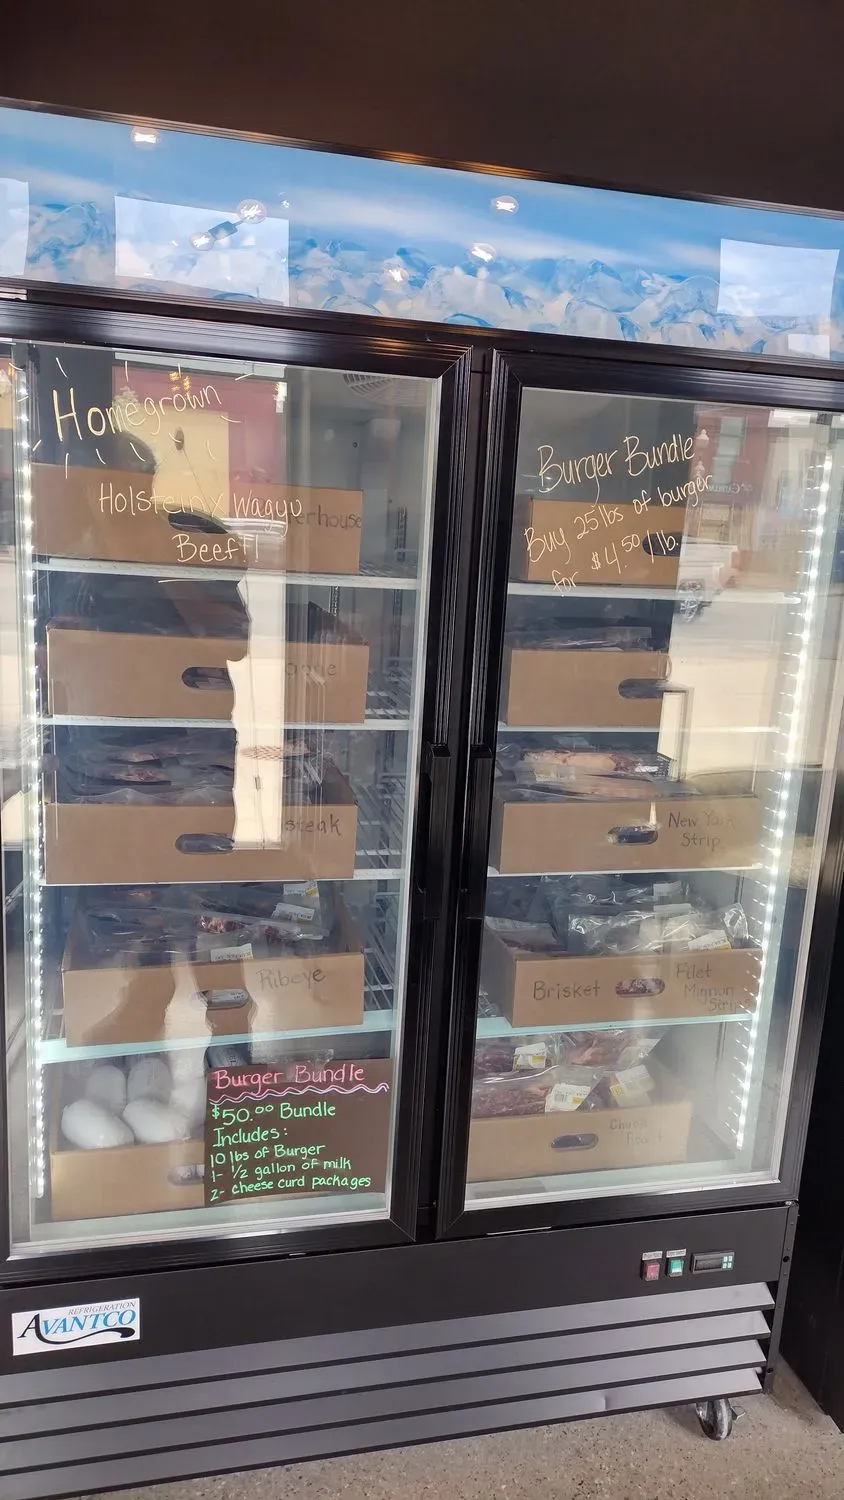 Homegrown
Holstein x Wagyu
Beef!!
Burger Bundle
Buy 25 lbs of burger
for $4.50/lb.
erhouse
steak
New York
Strip
Ribeye
Brisket
Filet
Mignon
Burger Bundle
$50.00 Bundle
Includes:
10 lbs of Burger
1- 1/2 gallon of milk
2- cheese curd packages
Chuck
Roast
REFRIGERATION
AVANTCO